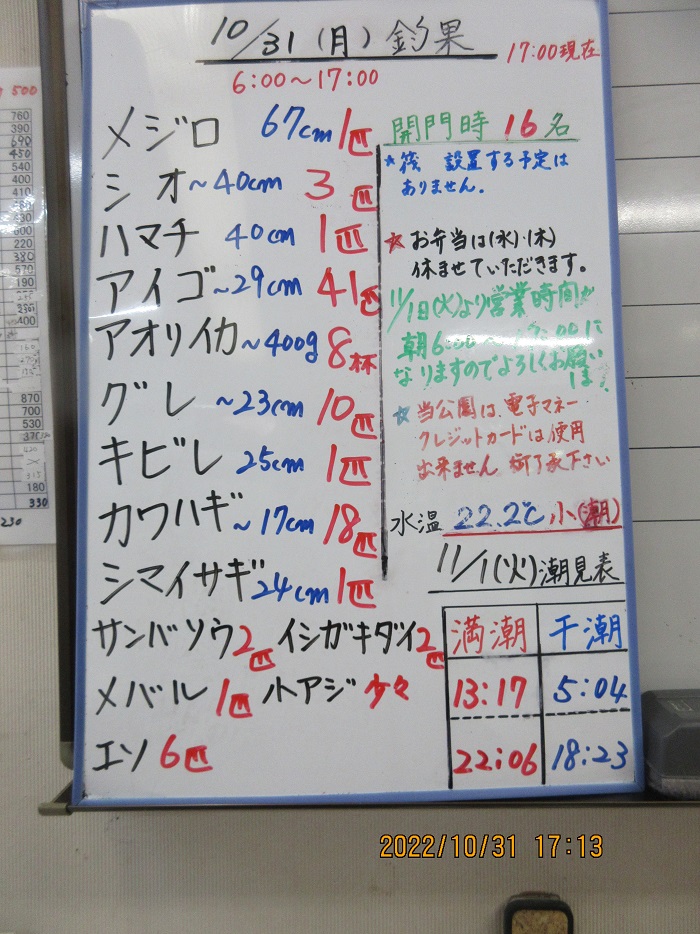 10/31(月)釣果
17:00現在
6:00～17:00
メジロ 67cm 1匹
シオ～40cm 3匹
ハマチ 40cm 1匹
アイゴ～29cm 41匹
アオリイカ～400g 8杯
グレ ～23cm 10匹
キビレ 25cm 1匹
カワハギ～17cm 18匹
シマイサギ24cm 1匹
サンバソウ2匹 イシガキダイ2匹
メバル 1匹 小アジ 少々
エソ 6匹
開門時 16名
★筏 設置する予定は
ありません.
☆お弁当は(水)・(木)
休ませていただきます。
11/1日(火)より営業時間が
朝6:00～17:00に
なりますのでよろしくお願い
☆当公園は、電子マネー
クレジットカードは使用
出来ません 御了承下さい
水温 22.2℃ 小(潮)
11/1(火)潮見表
満潮 干潮
13:17 5:04
22:06 18:23
500
760
390
690
450
540
400
410
600
220
380
570
190
400
870
700
530
180
330
230
2022/10/31 17:13